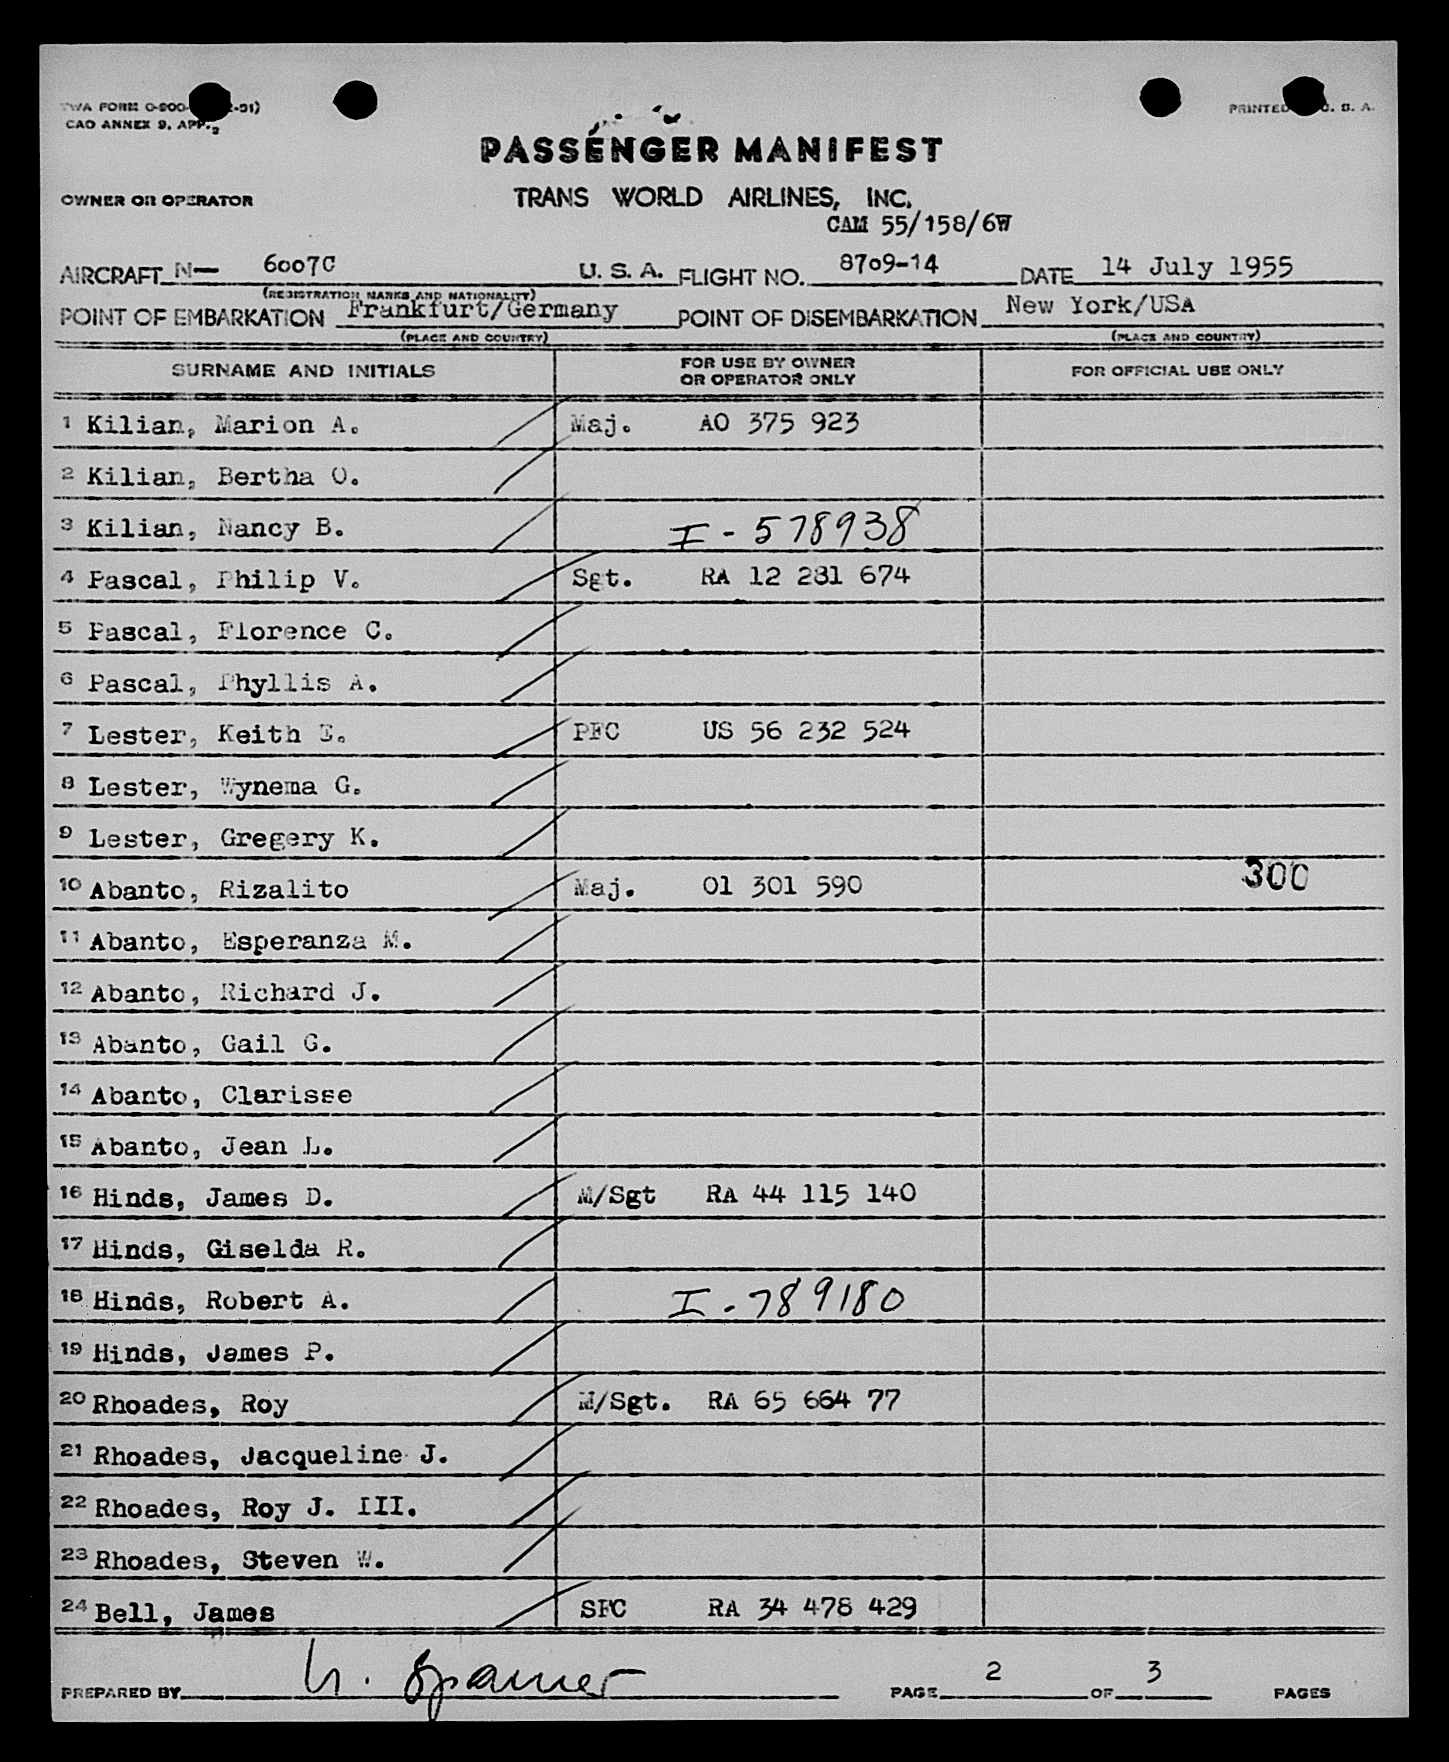 TWA FORM 0-900- -51)
PRINTED U. S. A.
CAO ANNEX 9, APP. 2
PASSENGER MANIFEST
OWNER OR OPERATOR
TRANS WORLD AIRLINES, INC.
CAM 55/158/6W
AIRCRAFT N— 6007C U. S. A. FLIGHT NO. 8709-14 DATE 14 July 1955
(REGISTRATION MARKS AND NATIONALITY)
POINT OF EMBARKATION Frankfurt/Germany POINT OF DISEMBARKATION New York/USA
(PLACE AND COUNTRY) (PLACE AND COUNTRY)
SURNAME AND INITIALS FOR USE BY OWNER OR OPERATOR ONLY FOR OFFICIAL USE ONLY
1 Kilian, Marion A. Maj. AO 375 923
2 Kilian, Bertha O.
3 Kilian, Nancy B. I - 578938
4 Pascal, Philip V. Sgt. RA 12 281 674
5 Pascal, Florence C.
6 Pascal, Phyllis A.
7 Lester, Keith E. PFC US 56 232 524
8 Lester, Wynema G.
9 Lester, Gregery K.
10 Abanto, Rizalito Maj. 01 301 590 300
11 Abanto, Esperanza M.
12 Abanto, Richard J.
13 Abanto, Gail G.
14 Abanto, Clarisse
15 Abanto, Jean L.
16 Hinds, James D. M/Sgt RA 44 115 140
17 Hinds, Giselda R.
18 Hinds, Robert A. I - 789180
19 Hinds, James P.
20 Rhoades, Roy M/Sgt. RA 65 664 77
21 Rhoades, Jacqueline J.
22 Rhoades, Roy J. III.
23 Rhoades, Steven W.
24 Bell, James SFC RA 34 478 429
PREPARED BY h. Spamer PAGE 2 OF 3 PAGES